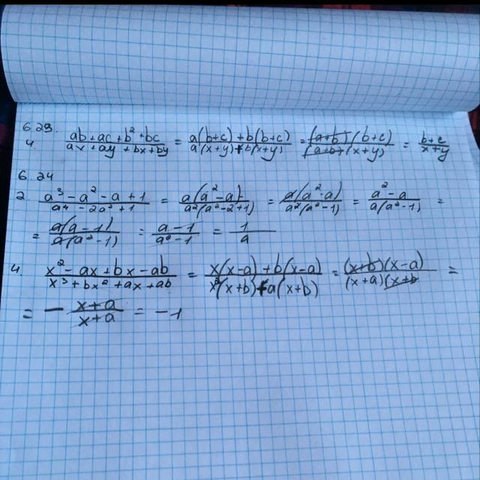 6.23.
4 \frac{ab+ac+b^2+bc}{ax+ay+bx+by} = \frac{a(b+c)+b(b+c)}{a(x+y)+b(x+y)} = \frac{(a+b)(b+c)}{(a+b)(x+y)} = \frac{b+c}{x+y}
6.24
2. \frac{a^3-a^2-a+1}{a^4-2a^2+1} = \frac{a(a^2-a)}{a^2(a^2-2+1)} = \frac{a(a^2-a)}{a^2(a^2-1)} = \frac{a^2-a}{a(a^2-1)} =
= \frac{a(a-1)}{a(a^2-1)} = \frac{a-1}{a^2-1} = \frac{1}{a}
4. \frac{x^2-ax+bx-ab}{x^3+bx^2+ax+ab} = \frac{x(x-a)+b(x-a)}{x^2(x+b)+a(x+b)} = \frac{(x+b)(x-a)}{(x+a)(x+b} =
= - \frac{x+a}{x+a} = -1